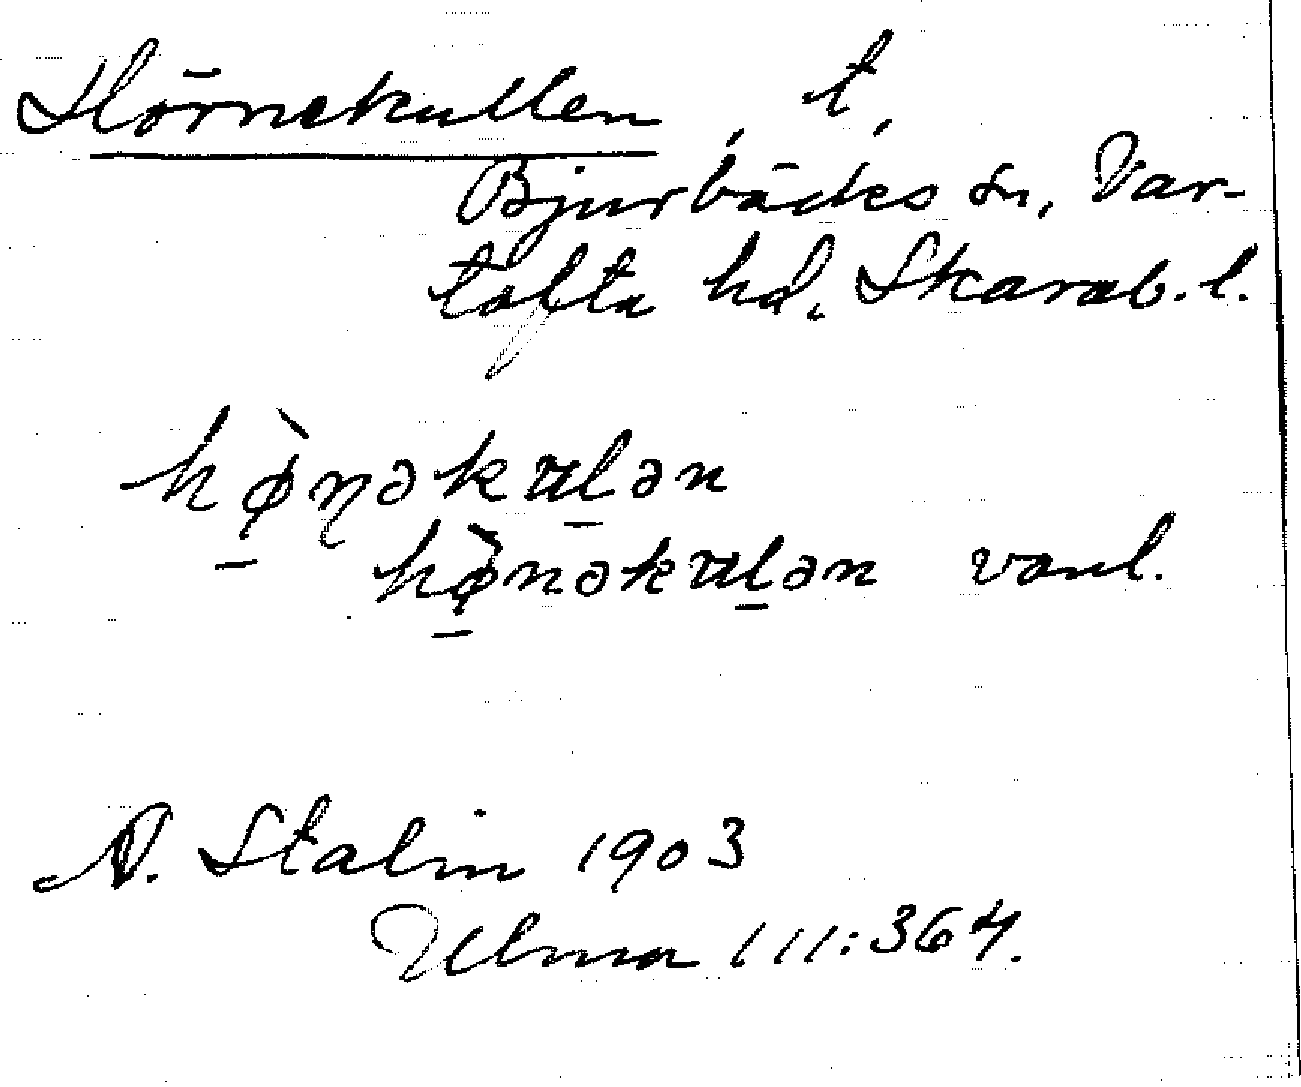 Hörnekullen, t,
Bjurbäcks sn, Var-
tofta hd, Skarab. l.
hø̱̀ɳəkɯḻən
hø̱̀nəkɯḻən vanl.
N. Stalin 1903
Ulma 111:364.